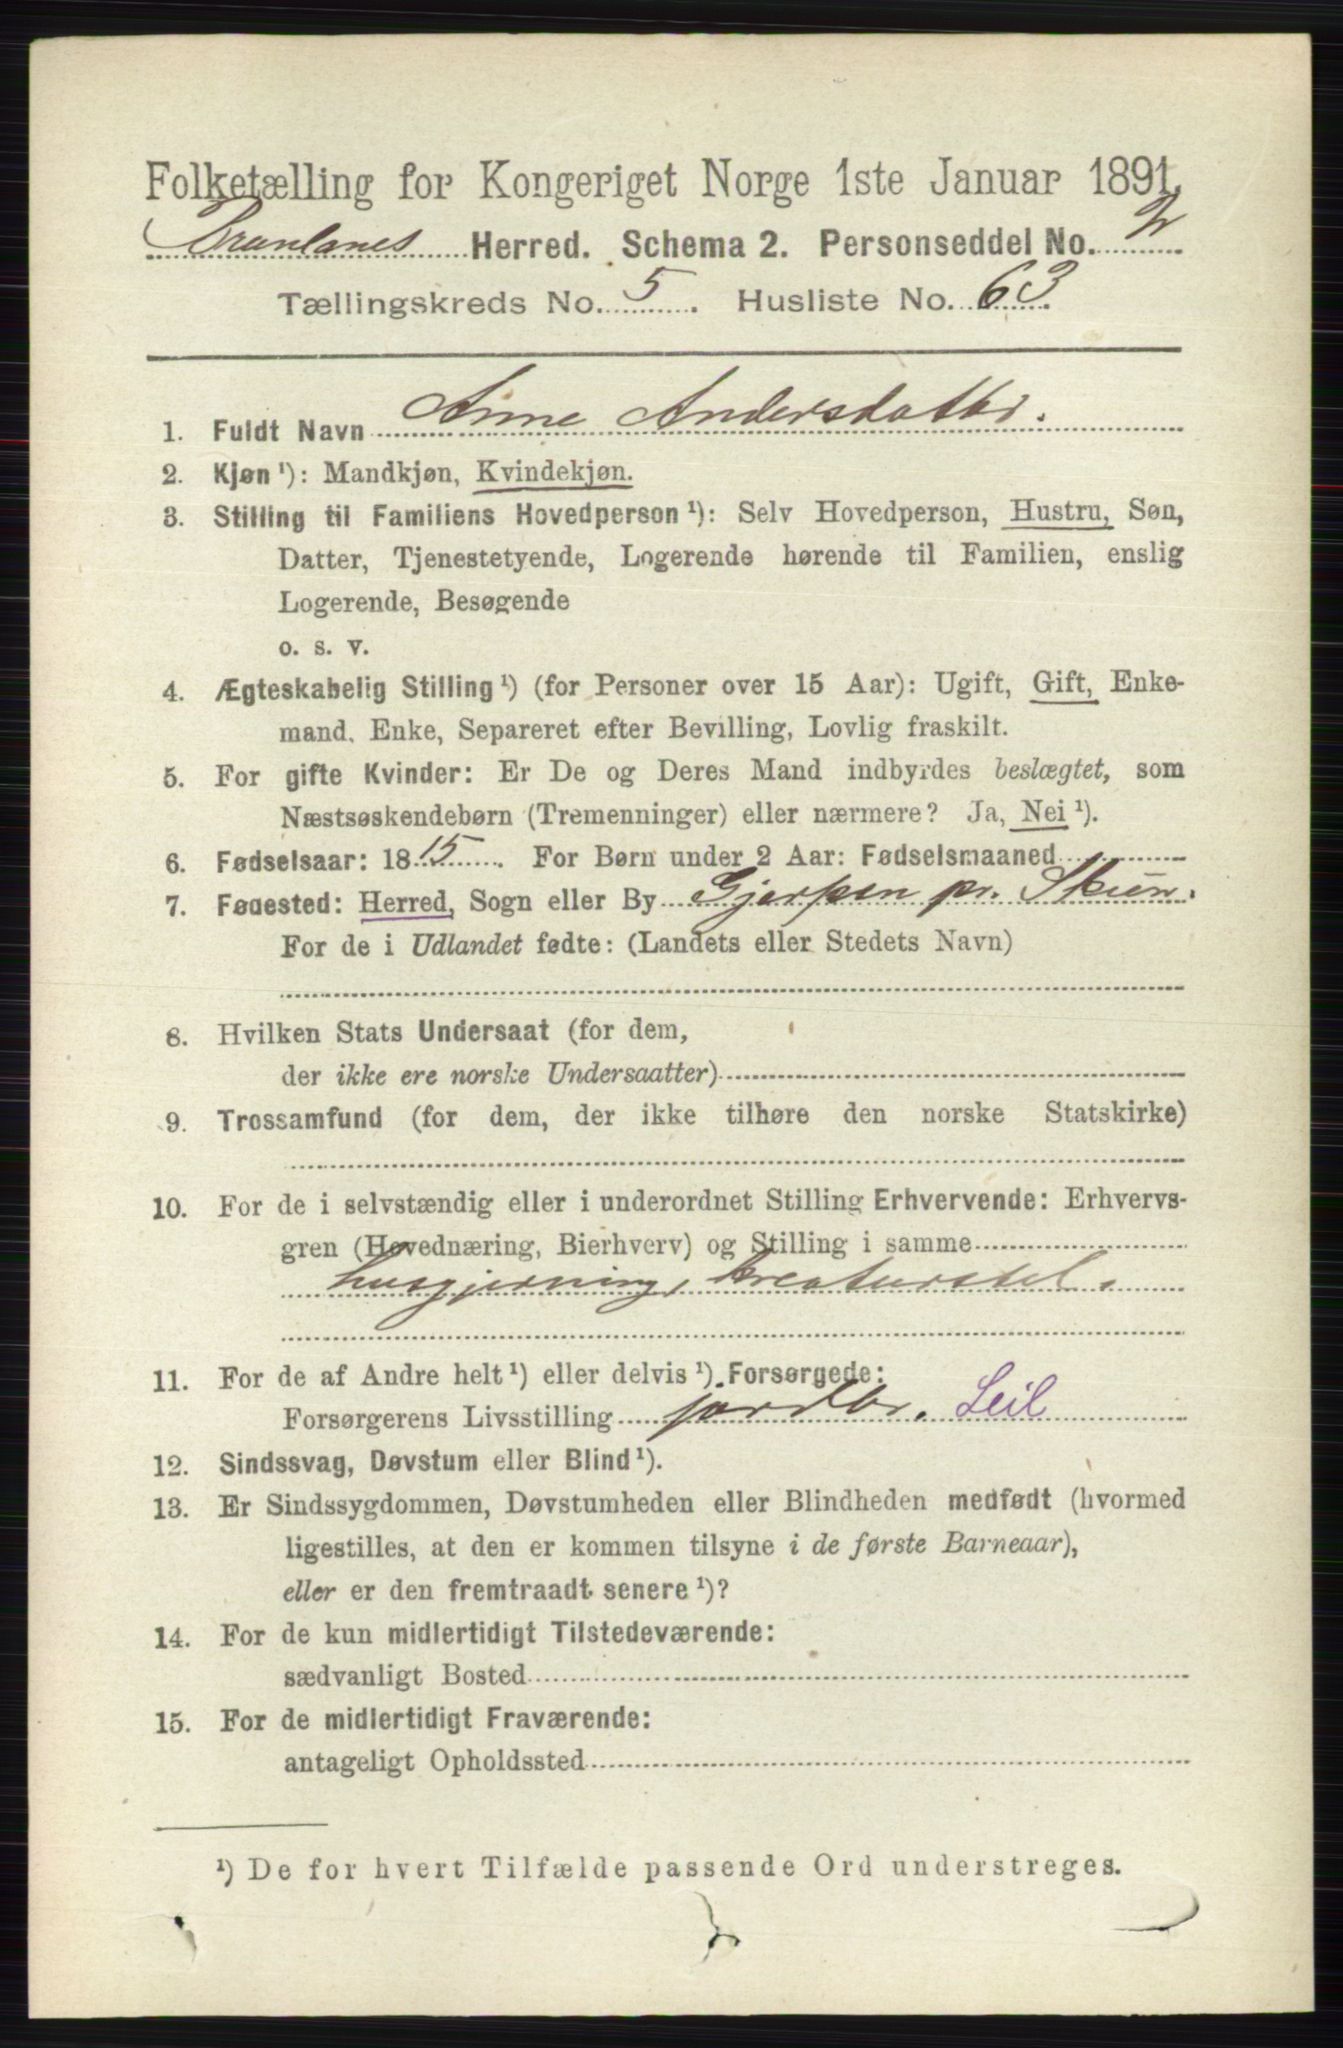 Folketælling for Kongeriget Norge 1ste Januar 1891.
Brunlanes Herred. Schema 2. Personseddel No. 2
Tællingskreds No. 5. Husliste No. 63.
1. Fuldt Navn Anne Andersdatter.
2. Kjøn ¹): Mandkjøn, Kvindekjøn.
3. Stilling til Familiens Hovedperson ¹): Selv Hovedperson, Hustru, Søn,
Datter, Tjenestetyende, Logerende hørende til Familien, enslig
Logerende, Besøgende
o. s. v.
4. Ægteskabelig Stilling ¹) (for Personer over 15 Aar): Ugift, Gift, Enke-
mand, Enke, Separeret efter Bevilling, Lovlig fraskilt.
5. For gifte Kvinder: Er De og Deres Mand indbyrdes beslægtet, som
Næstsøskendebørn (Tremenninger) eller nærmere? Ja, Nei ¹).
6. Fødselsaar: 1815. For Børn under 2 Aar: Fødselsmaaned
7. Fødested: Herred, Sogn eller By Gjerpen pr. Skien.
For de i Udlandet fødte: (Landets eller Stedets Navn)
8. Hvilken Stats Undersaat (for dem,
der ikke ere norske Undersaatter)
9. Trossamfund (for dem, der ikke tilhøre den norske Statskirke)
10. For de i selvstændig eller i underordnet Stilling Erhvervende: Erhvervs-
gren (Hovednæring, Bierhverv) og Stilling i samme
husgjerning, kreaturstel.
11. For de af Andre helt ¹) eller delvis ¹) Forsørgede:
Forsørgerens Livsstilling jordbr. Leil
12. Sindssvag, Døvstum eller Blind ¹).
13. Er Sindssygdommen, Døvstumheden eller Blindheden medfødt (hvormed
ligestilles, at den er kommen tilsyne i de første Barneaar),
eller er den fremtraadt senere ¹)?
14. For de kun midlertidigt Tilstedeværende:
sædvanligt Bosted
15. For de midlertidigt Fraværende:
antageligt Opholdssted
¹) De for hvert Tilfælde passende Ord understreges.